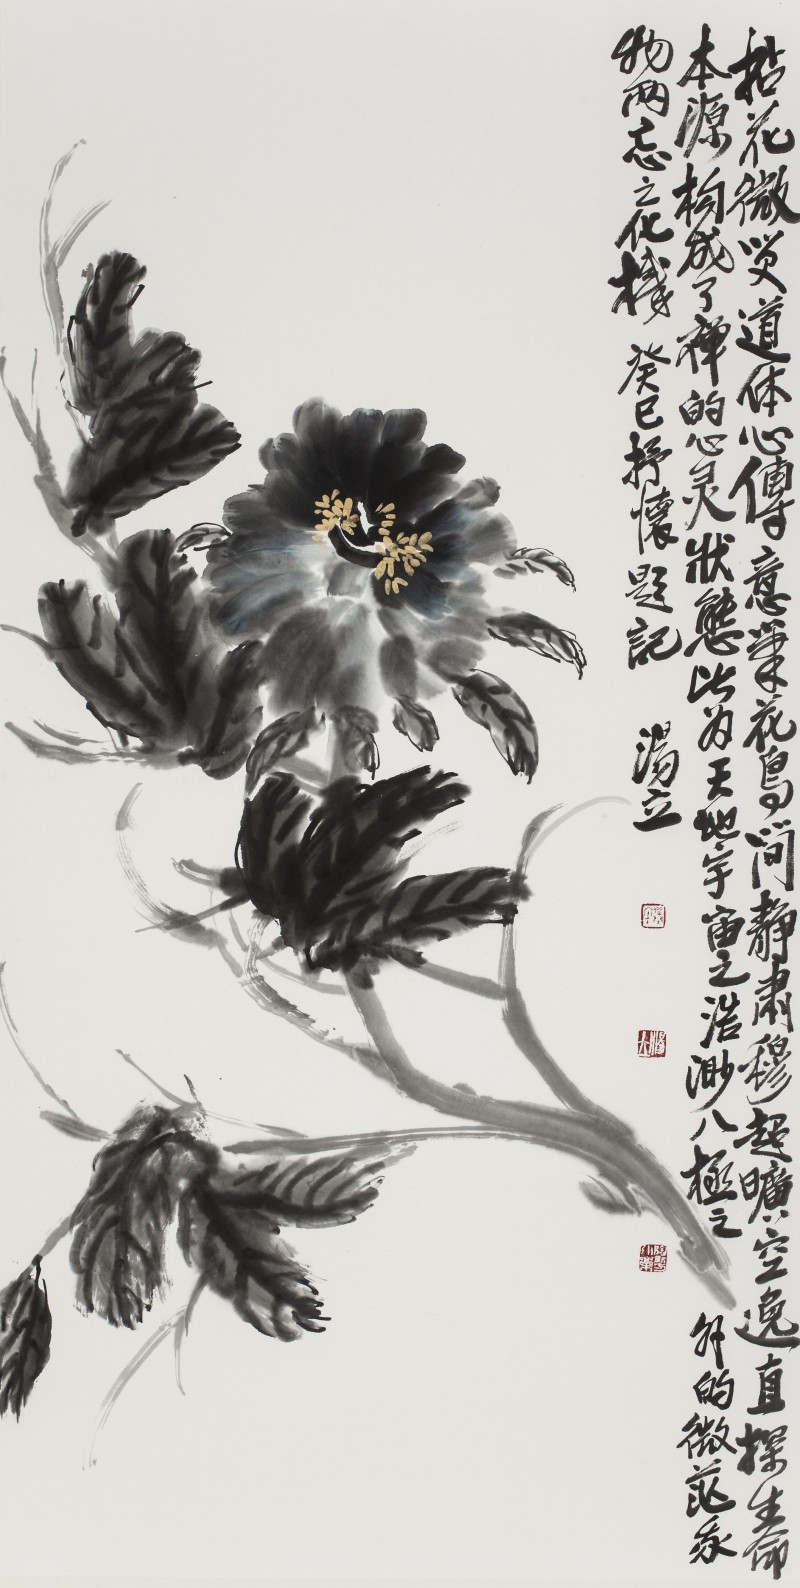 拈花微笑道体心傳意筆花鳥簡静肅穆超曠空逸直探生命
本源构成了禅的心灵狀態此为天地宇宙之浩渺八極之外的微茫永
物两忘之化機 癸巳抒懷题記 湯立